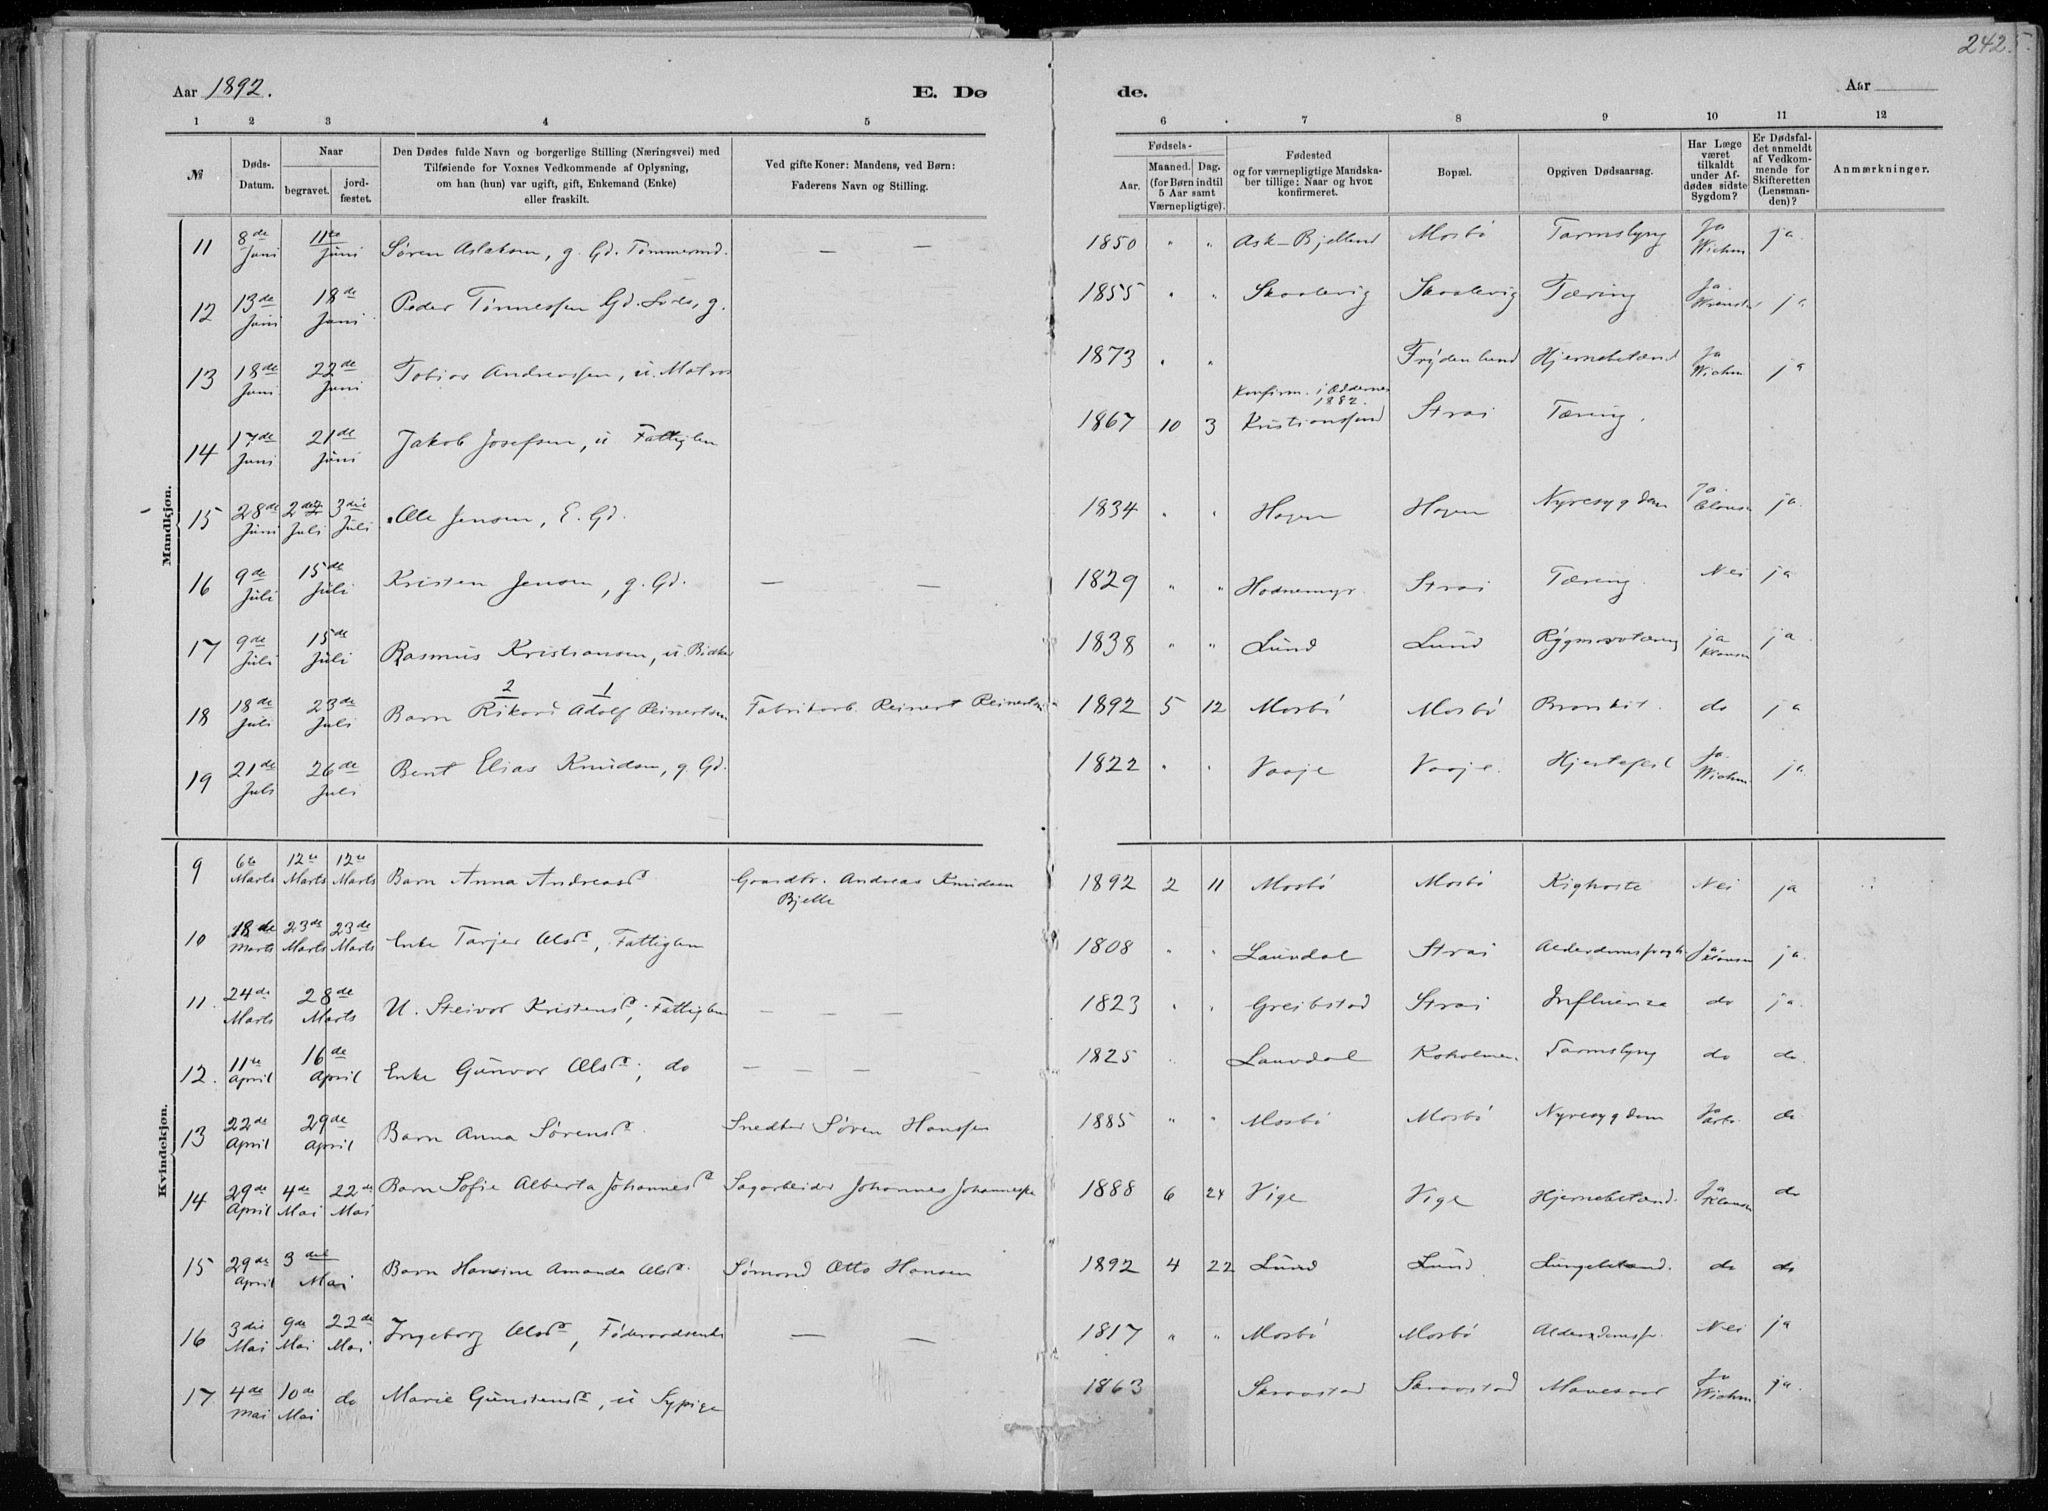 242 5.
Aar 1892.
E. Dø
de.
Aar
1 2 3 4 5 6 7 8 9 10 11 12
№
Døds-Datum.
Naar
begravet.
jord-fæstet.
Den Dødes fulde Navn og borgerlige Stilling (Næringsvei) med
Tilføiende for Voxnes Vedkommende af Oplysning,
om han (hun) var ugift, gift, Enkemand (Enke)
eller fraskilt.
Ved gifte Koner: Mandens, ved Børn:
Faderens Navn og Stilling.
Fødsels-
Aar.
Maaned. Dag.
(for Børn indtil
5 Aar samt
Værnepligtige).
Fødested
og for værnepligtige Mandska-
ber tillige: Naar og hvor
konfirmeret.
Bopæl.
Opgiven Dødsaarsag.
Har Læge
været
tilkaldt
under Af-
dødes sidste
Sygdom?
Er Dødsfal-
det anmeldt
af Vedkom-
mende for
Skifteretten
(Lensman-
den)?
Anmærkninger.
Mandkjøn.
11 8de Juni 11te Juni Søren Aslaksen, g. Gd. Tømmermd. — — 1850 " " Ask-Bjelland Mosbö Tarmslyng Ja Wichm ja.
12 13de Juni 18de Juni Peder Tønnessen Gd. g. 1855 " " Skaalevig Skaalevig Tæring Ja ja
13 18de Juni 22de Juni Tobias Andreassen, ü. Matros 1873 " " Frydenlund Hjernebetænd Ja Wichm ja
14 17de Juni 21de Juni Jakob Josefsen, ü Fattiglem 1867 10 3 Konfirm. i Oddernes 1882. Kristianssand Strai Tæring.
15 28de Juni 2den Juli 3die Juli Ole Jensen, E. Gd. 1834 " " Hagen Hagen Nyresygdom Ja. ja.
16 9de Juli 15de Juli Kristen Jensen, g. Gd. — — 1829 " " Hodnemyr. Strai Tæring. Nei ja
17 9de Juli 15de Juli Rasmus Kristiansen, ü. 1838 " " Lund Lund Rygmarvstæring ja Klausen ja.
18 18de Juli 23de Juli Barn Rikard 2 Adolf 1 Reinertsen Fabrikarb. Reinert Reinertsen 1892 5 12 Mosbö Mosbö Bronkit. do ja
19 21de Juli 26de Juli Bent Elias Knudsen, g. Gd. 1822 " " Vaaje Vaaje. Hjertefeil Ja. Wichm ja.
Kvindekjøn.
9 6te Marts 12te Marts 12te Marts Barn Anna Andreasd. Gaardbr. Andreas Knudsen Bjelle 1892 2 11 Mosbö Mosbö Kighoste Nei ja
10 18de Marts 23de Marts 23de Marts Enke Tarjer Olsd, Fattiglem 1808 " " Lauvdal Strai Ja Klausen ja.
11. 24de Marts 28de Marts U. Steivor Kristensd, Fattiglem — — — 1823 " " Greibstad Strai Influenza do ja.
12. 11te April 16de April Enke Gunvor Olsd, do — — — 1825 " Lauvdal Koholmen. Tarmslyng do do.
13 22de April 29de April Barn Anna Sörensd. Snedker Sören Hanssen 1885 " " Mosbö Mosbö Nyresygdom Ja do
14 29de April 4de Mai 22de Mai Barn Sofie Alberta Johannesd Sagarbeider Johannes Johannessen 1888 6 24 Vige Vige Hjernebetænd. Ja Klausen do
15 29de April 3die Mai Barn Hansine Amanda Olsd. Sömand Otto Hansen 1892 4 22 Lund Lund. Lungebetænd. do do
16 3die Mai 9de Mai 22de Mai Ingeborg Olsd, Föderaadsenke — — 1817 " " Mosbö Mosbö Alderdomssv. Nei ja
17 4de Mai 10de Mai do Marie Gunstensd, ü Sypige 1863 Skraastad Skraastad Mavesaar Ja Wichm ja.